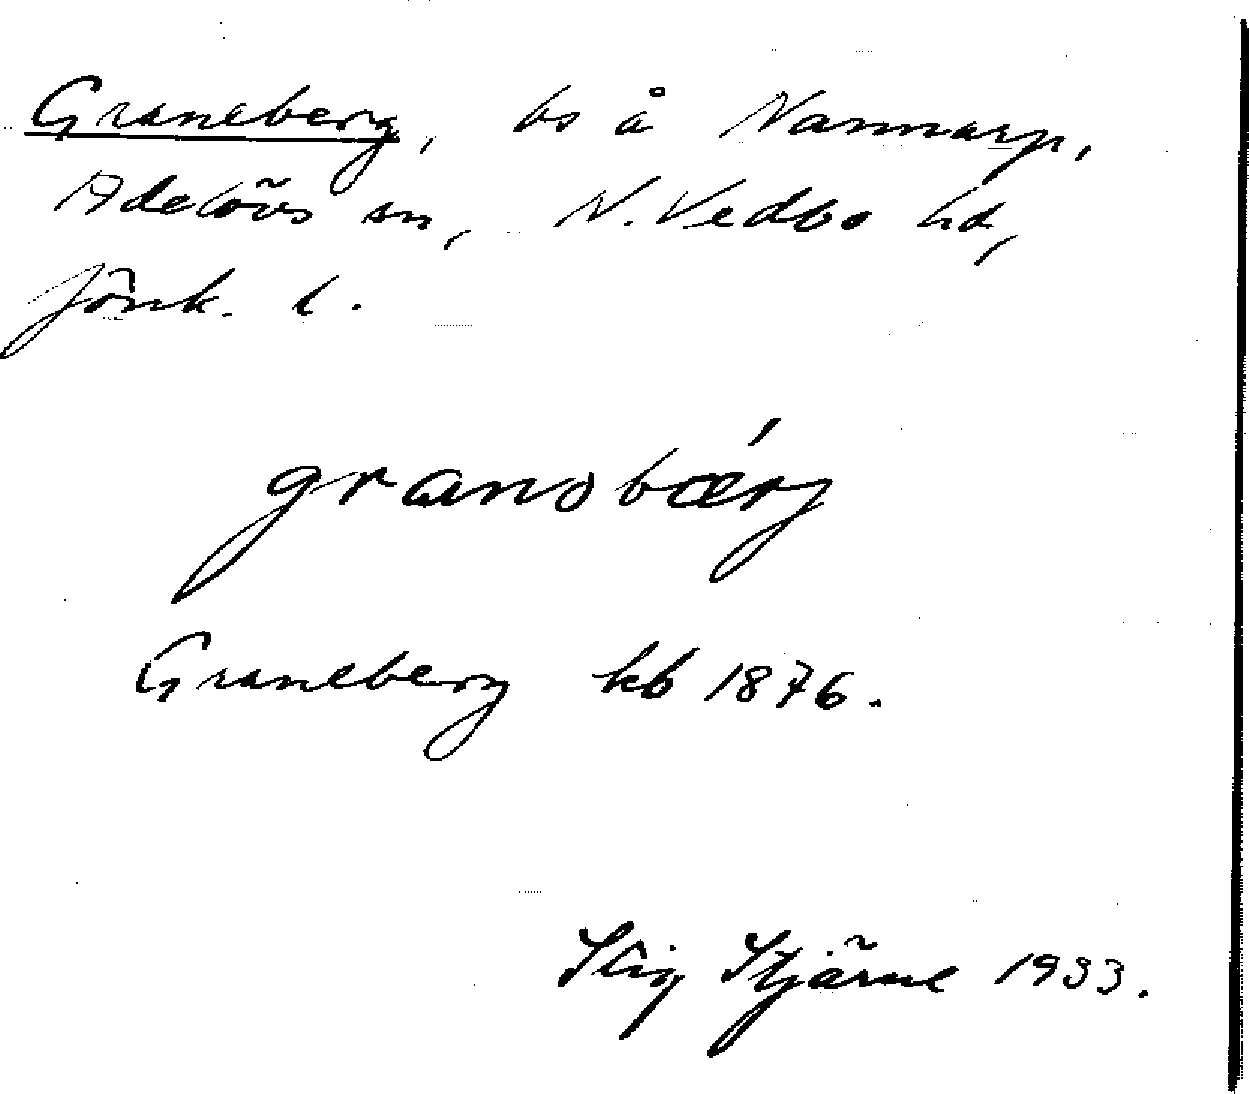 Graneberg, bs å Nannarp,
Adelövs sn, N. Vedbo hd,
Jönk. l.
granəbǽrj
Graneberg kb 1876.
Stig Stjärne 1933.